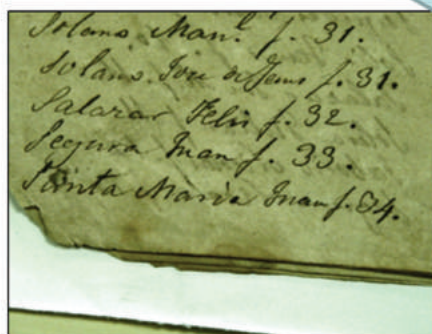 Solano Man.l f. 31.
Solano Jose de Jesus f. 31.
Salazar Felis f. 32.
Segura Juan f. 33.
Santa Maria Juan f. 34.